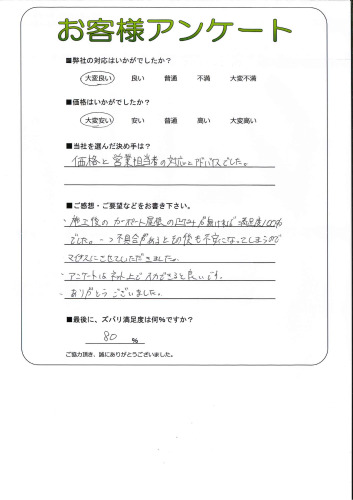 お客様アンケート
■弊社の対応はいかがでしたか？
大変良い 良い 普通 不満 大変不満
■価格はいかがでしたか？
大変安い 安い 普通 高い 大変高い
■当社を選んだ決め手は？
価格と営業担当者の対応とアドバイスでした。
■ご感想・ご要望などをお書き下さい。
・施工後のカーポート屋根の凹みが無ければ満足度100%
でした。一つ不具合があると印象も不安になってしまうので
マイナスにさせていただきました。
・アンケートはネット上で入力できると良いです。
・ありがとうございました。
■最後に、ズバリ満足度は何%ですか？
80 %
ご協力頂き、誠にありがとうございました。